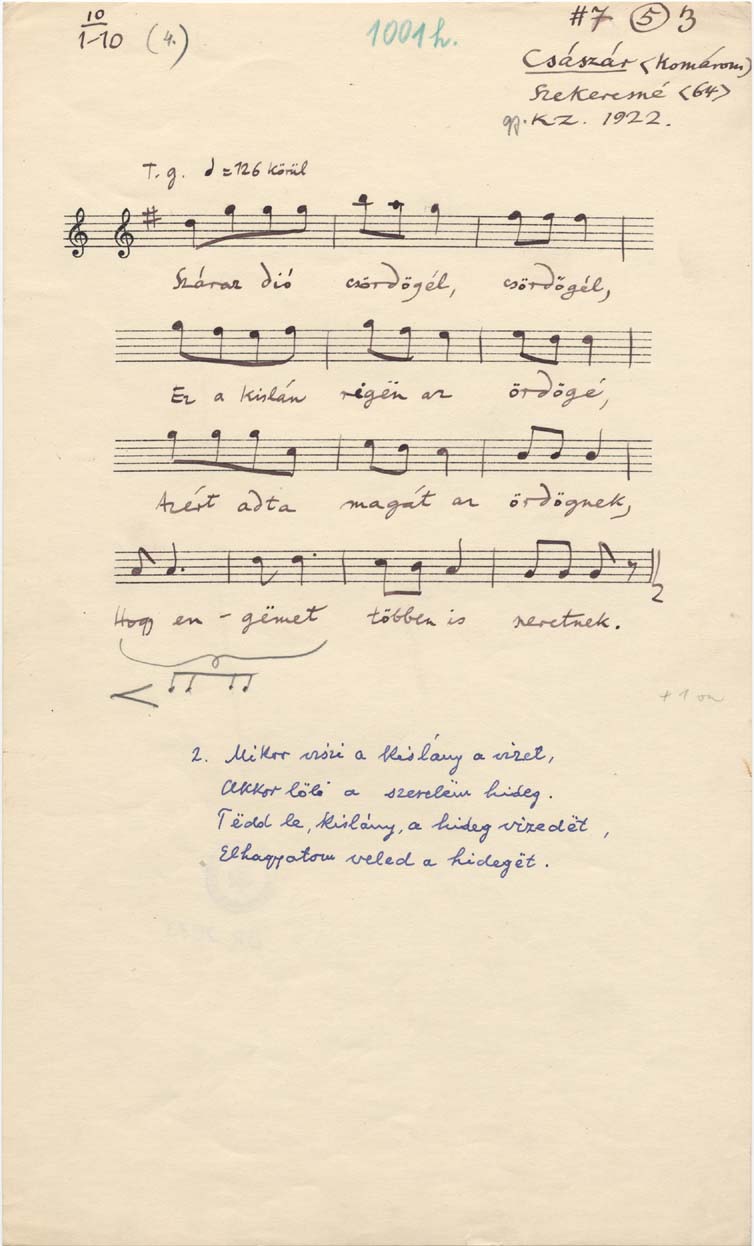 10
1-10 (4.)
1001 h.
#7 5 3
Császár <Komárom>
Szekeresné <64>
gy. KZ. 1922.
T. g. = 126 körül
Száraz dió csördögél, csördögél,
Ez a kislán rigën az ördögé,
Azért adta magát az ördögnek,
Hogy en - gëmet többen is szeretnek.
2. Mikor viszi a kislány a vizet,
Akkor lölö a szerelëm hideg.
Tëdd le, kislány, a hideg vizedët,
Elhagyatom veled a hidegët.